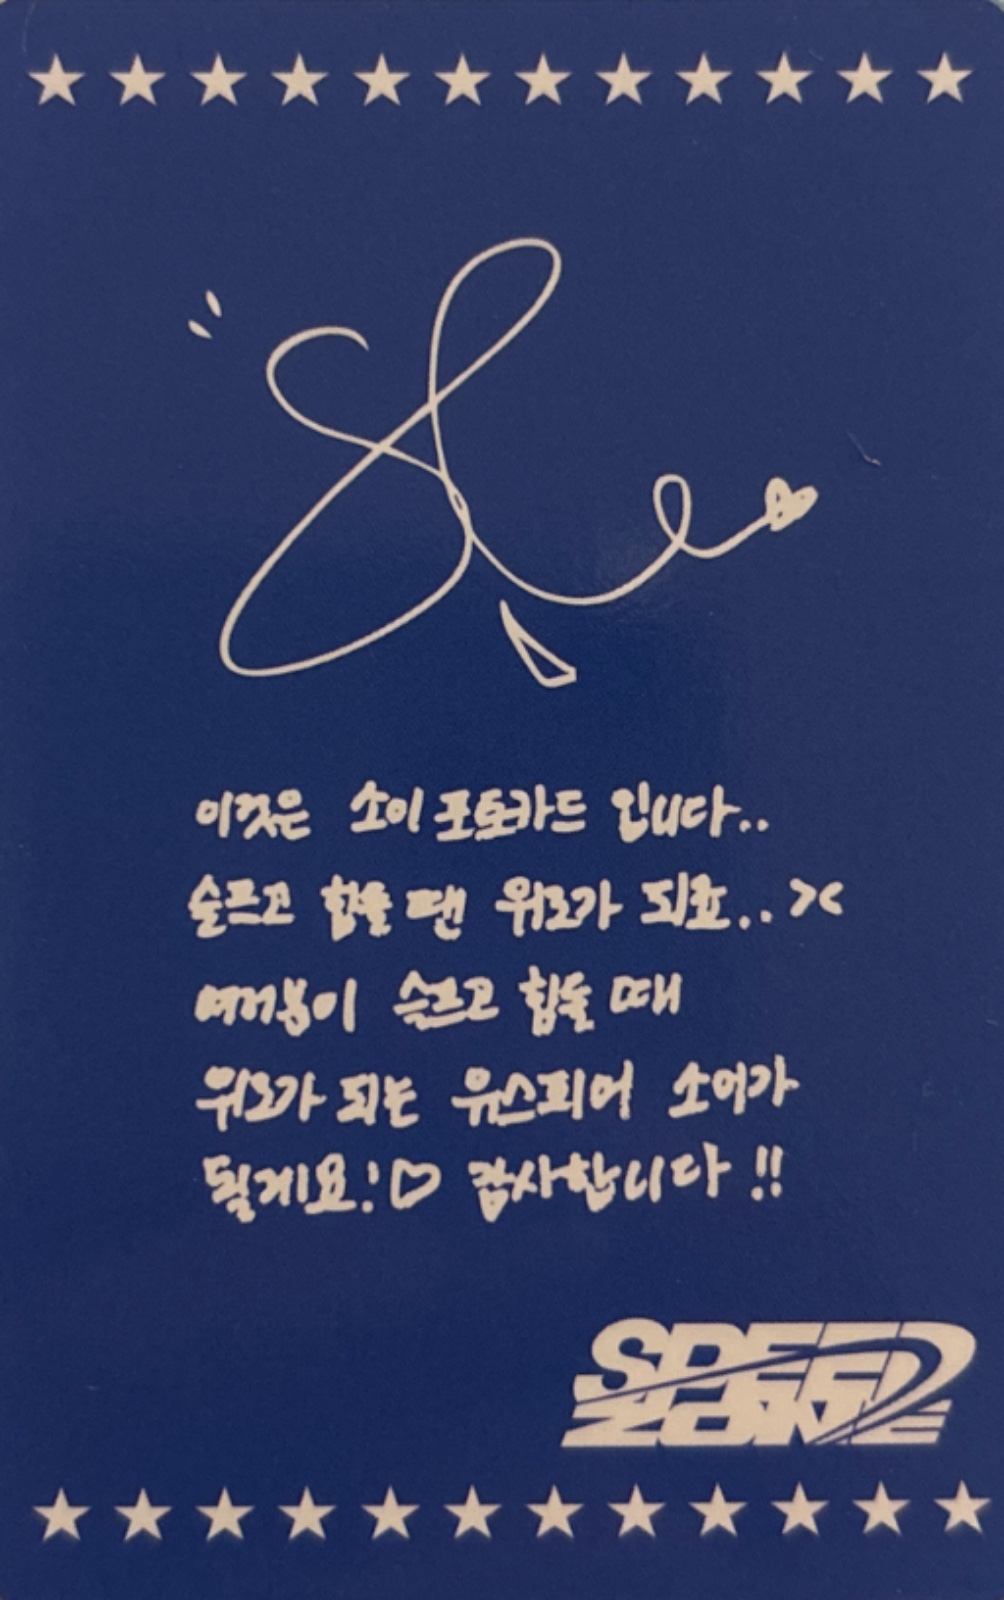 이것은 소이 포토카드 입니다..
슬프고 힘들 땐 위로가 되죠..><
여러분이 슬프고 힘들 때
위로가 되는 유스피어 소이가
될게요!♡ 감사합니다!!
SPEED
ZONE